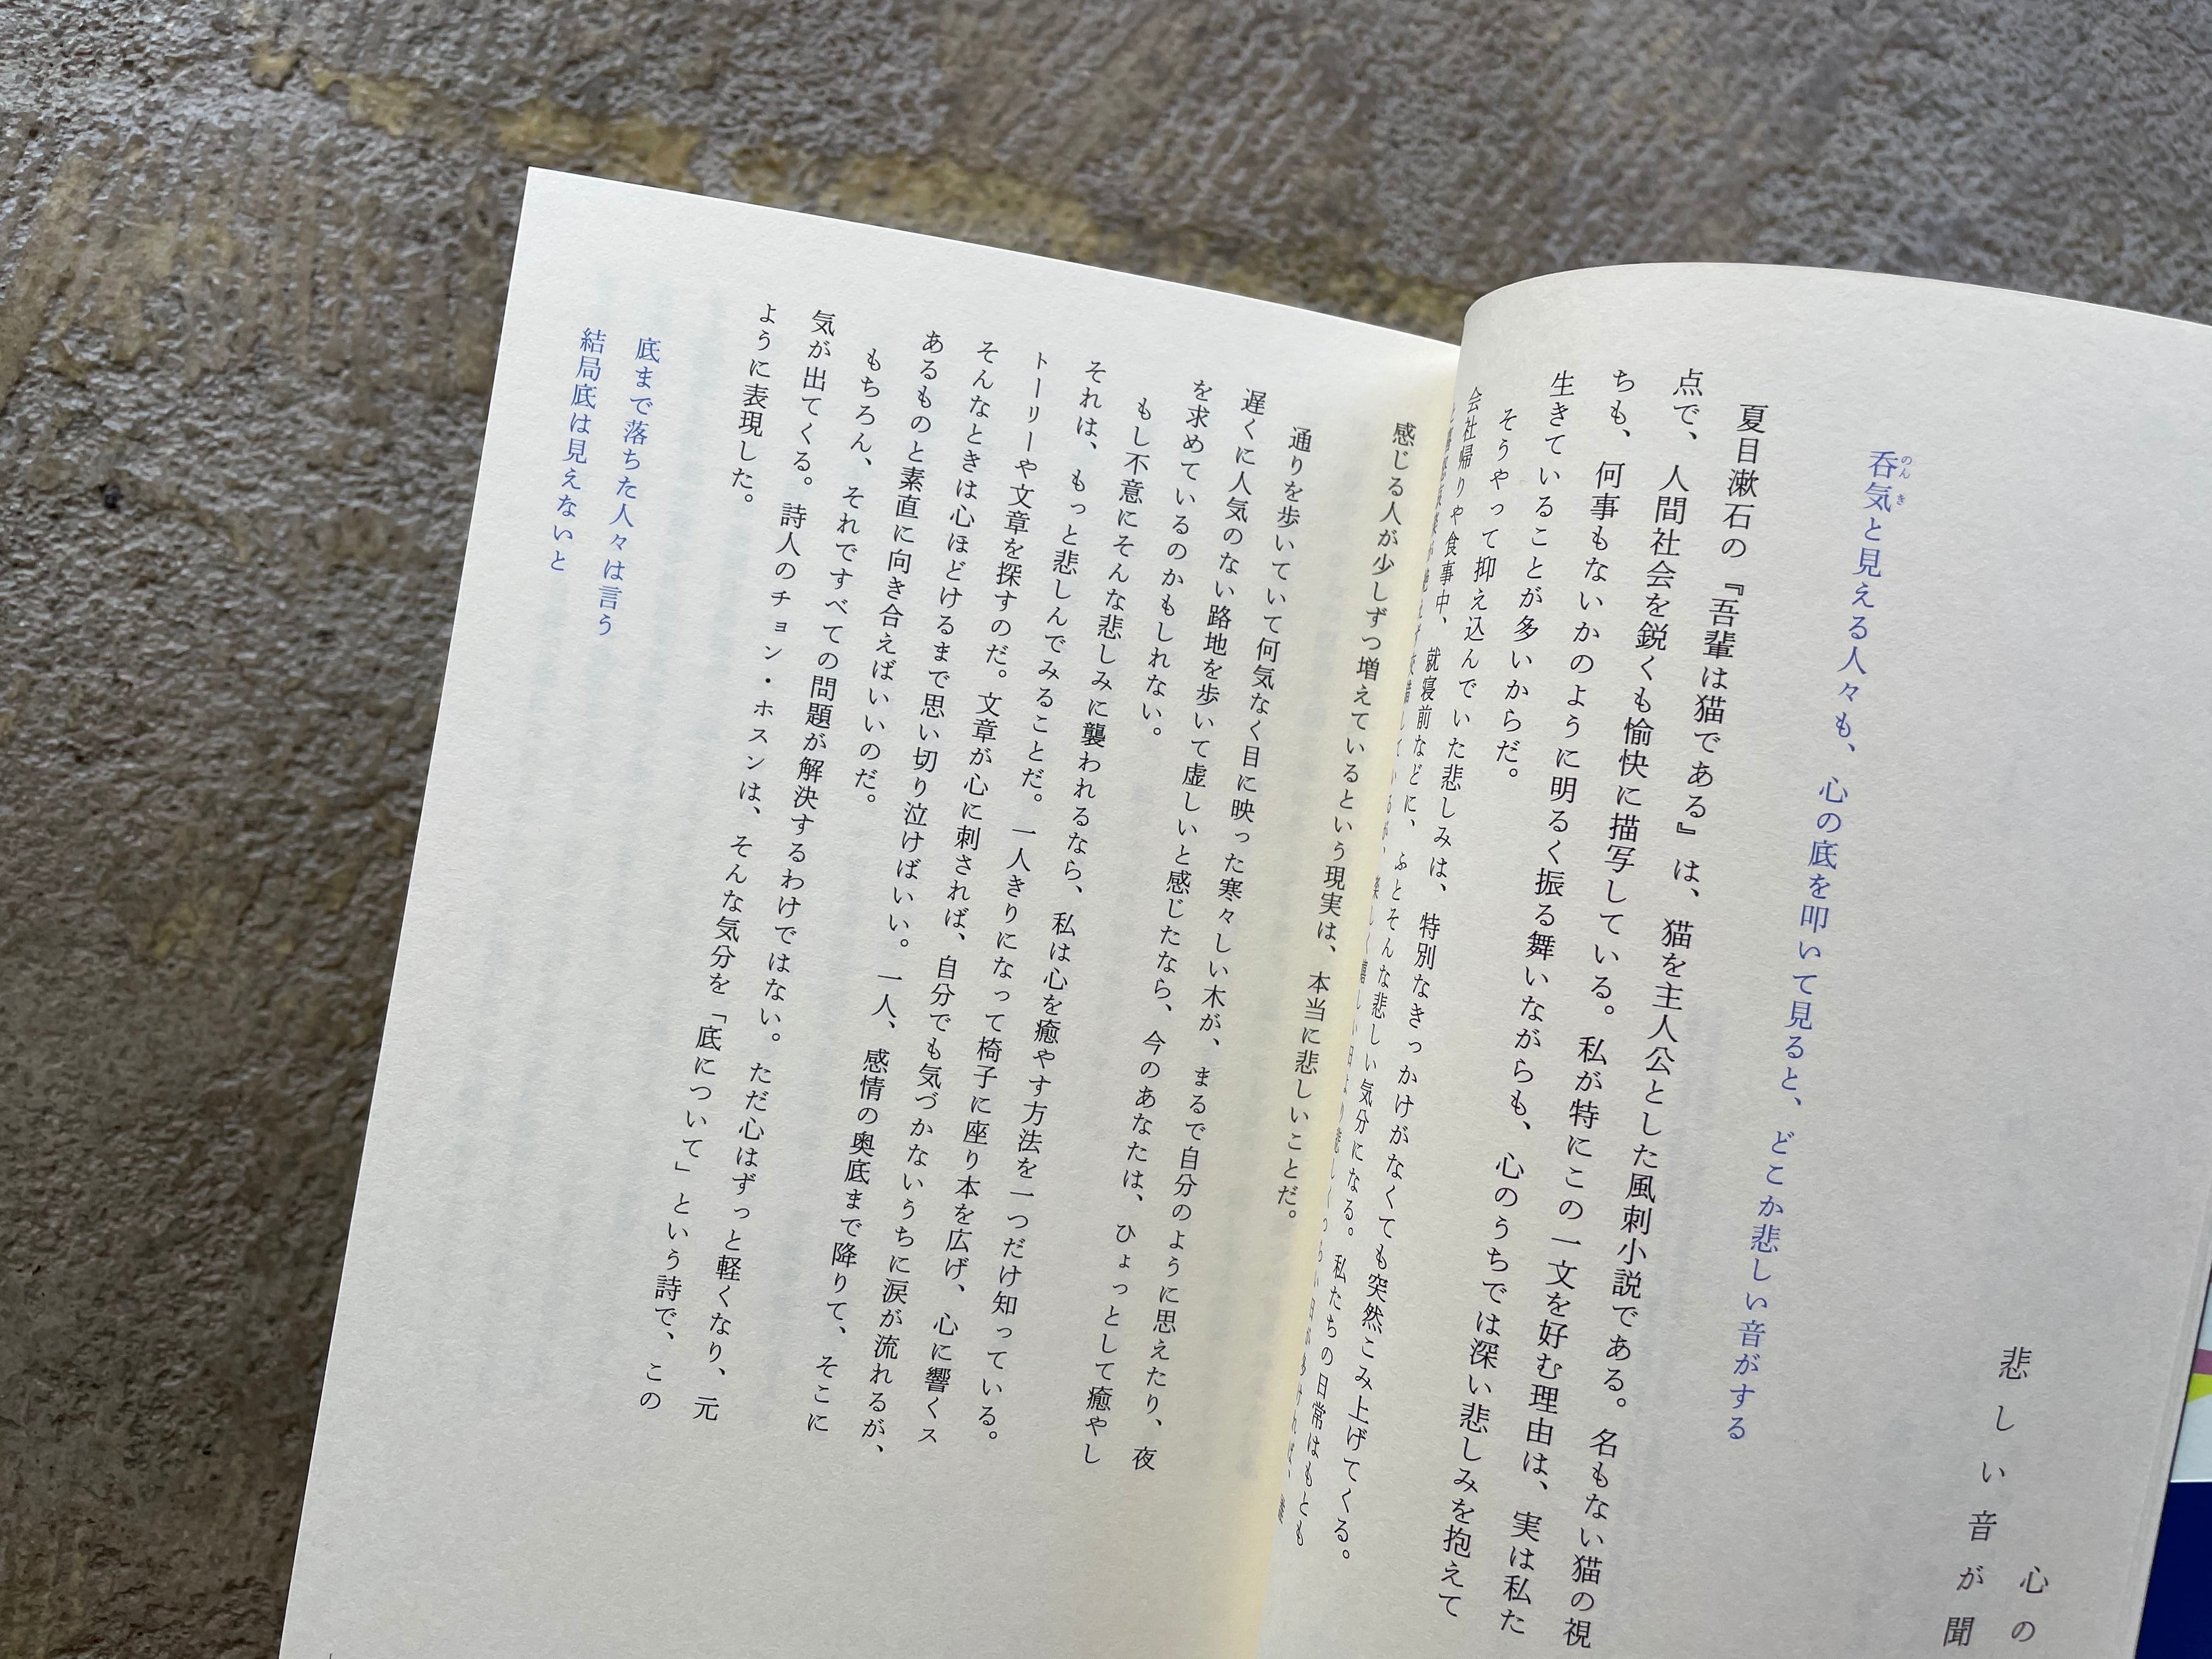 心の
悲しい音が聞
呑気と見える人々も、心の底を叩いて見ると、どこか悲しい音がする
夏目漱石の『吾輩は猫である』は、猫を主人公とした風刺小説である。名もない猫の視
点で、人間社会を鋭くも愉快に描写している。私が特にこの一文を好む理由は、実は私た
ちも、何事もないかのように明るく振る舞いながらも、心のうちでは深い悲しみを抱えて
生きていることが多いからだ。
そうやって抑え込んでいた悲しみは、特別なきっかけがなくても突然こみ上げてくる。
会社帰りや食事中、就寝前などに、ふとそんな悲しい気分になる。私たちの日常はもとも
感じる人が少しずつ増えているという現実は、本当に悲しいことだ。
通りを歩いていて何気なく目に映った寒々しい木が、まるで自分のように思えたり、夜
遅くに人気のない路地を歩いて虚しいと感じたなら、今のあなたは、ひょっとして癒やし
を求めているのかもしれない。
もし不意にそんな悲しみに襲われるなら、私は心を癒やす方法を一つだけ知っている。
それは、もっと悲しんでみることだ。一人きりになって椅子に座り本を広げ、心に響くス
トーリーや文章を探すのだ。文章が心に刺されば、自分でも気づかないうちに涙が流れるが、
そんなときは心ほどけるまで思い切り泣けばいい。一人、感情の奥底まで降りて、そこに
あるものと素直に向き合えばいいのだ。
もちろん、それですべての問題が解決するわけではない。ただ心はずっと軽くなり、元
気が出てくる。詩人のチョン・ホスンは、そんな気分を「底について」という詩で、この
ように表現した。
底まで落ちた人々は言う
結局底は見えないと